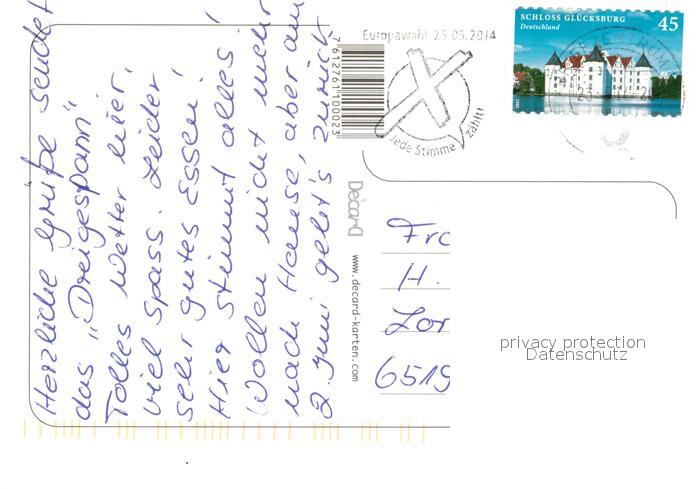 Herzliche Grüße sendet
das „Dreigespann".
Tolles Wetter hier,
viel Spass. Leider!
Sehr gutes Essen!
Hier stimmt alles!
Wollen nicht mehr
nach Hause, aber am
2. Juni geht's zurück
Europawahl 25.05.2014
Jede Stimme zählt!
SCHLOSS GLÜCKSBURG
Deutschland
45
7612761100023
Decard
www.decard-karten.com
Fr
H.
Lor
6519
privacy protection
Datenschutz